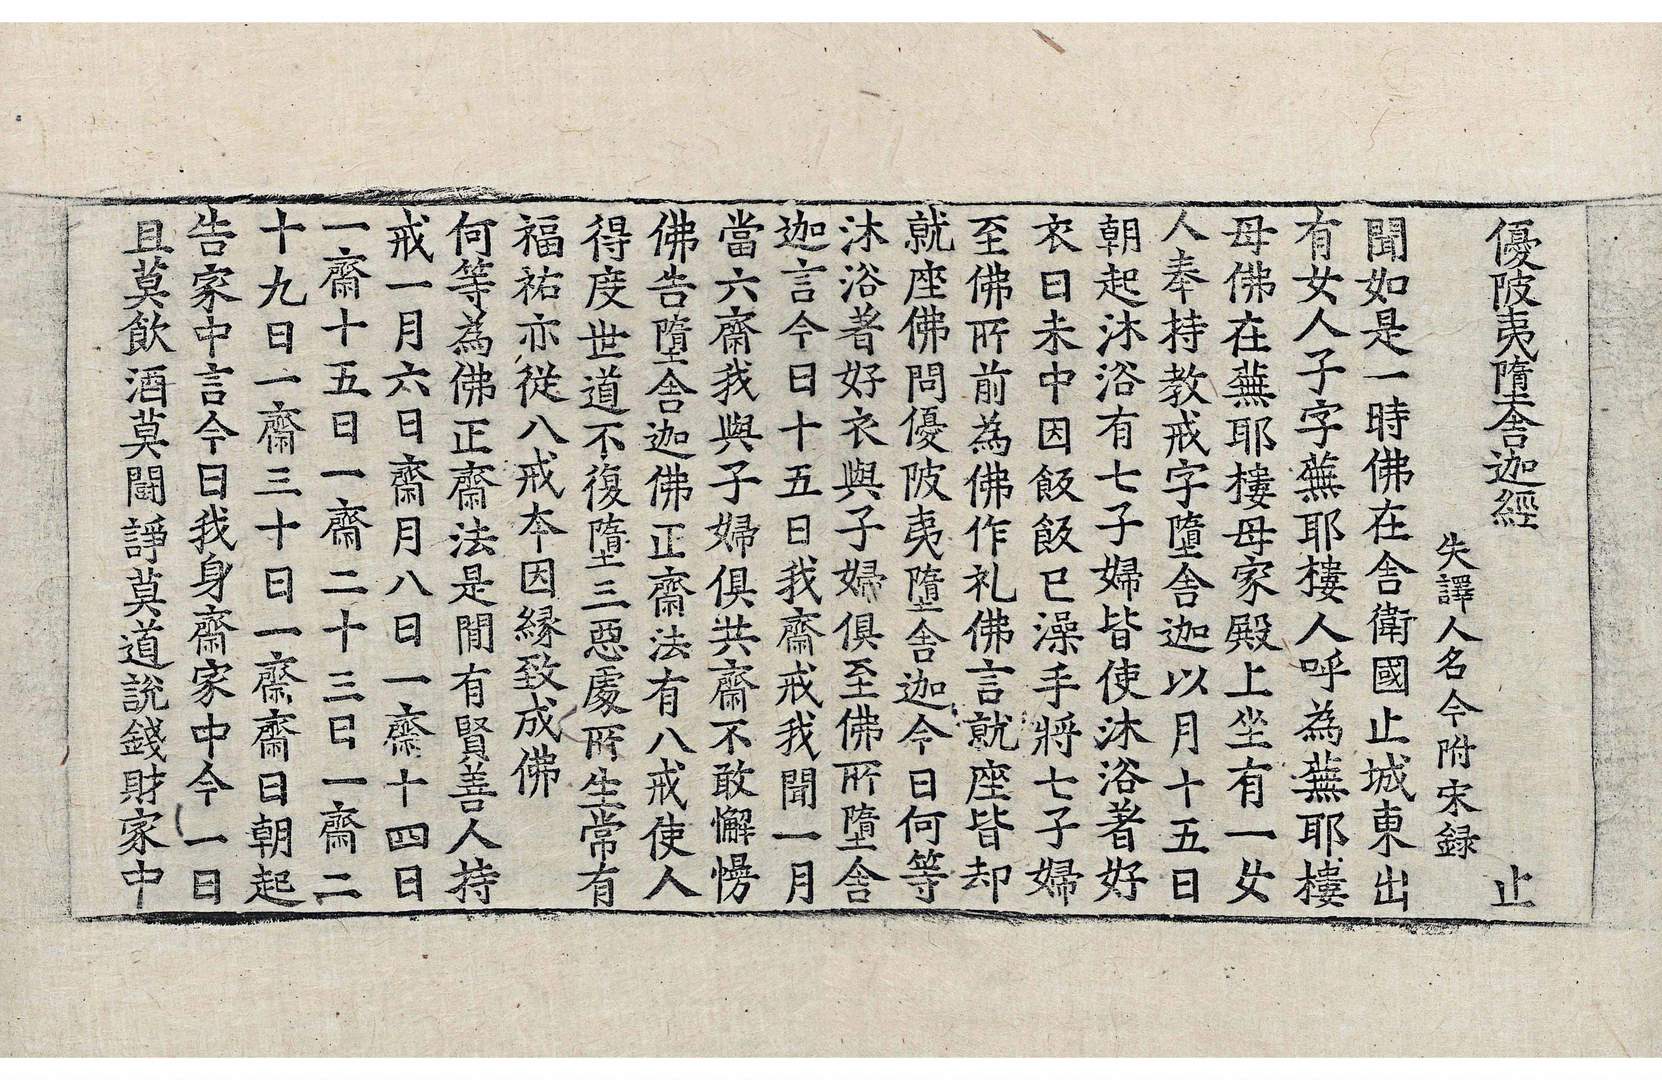 優陂夷墮舍迦經　止
失譯人名今附宋録
聞如是一時佛在舍衛國止城東出
有女人子字蕪耶樓人呼為蕪耶樓
母佛在蕪耶樓母家殿上坐有一女
人奉持教戒字墮舍迦以月十五日
朝起沐浴有七子婦皆使沐浴著好
衣日未中因飯飯已澡手將七子婦
至佛所前為佛作礼佛言就座皆却
就座佛問優陂夷墮舍迦今日何等
沐浴著好衣與子婦俱至佛所墮舍
迦言今日十五日我齋戒我聞一月
當六齋我與子婦俱共齋不敢懈慢
佛告墮舍迦佛正齋法有八戒使人
得度世道不復墮三惡處所生常有
福祐亦從八戒夲因縁致成佛
何等為佛正齋法是閒有賢善人持
戒一月六日齋月八日一齋十四日
一齋十五日一齋二十三日一齋二
十九日一齋三十日一齋齋日朝起
告家中言今日我身齋家中今一日
且莫飲酒莫鬪諍莫道說錢財家中